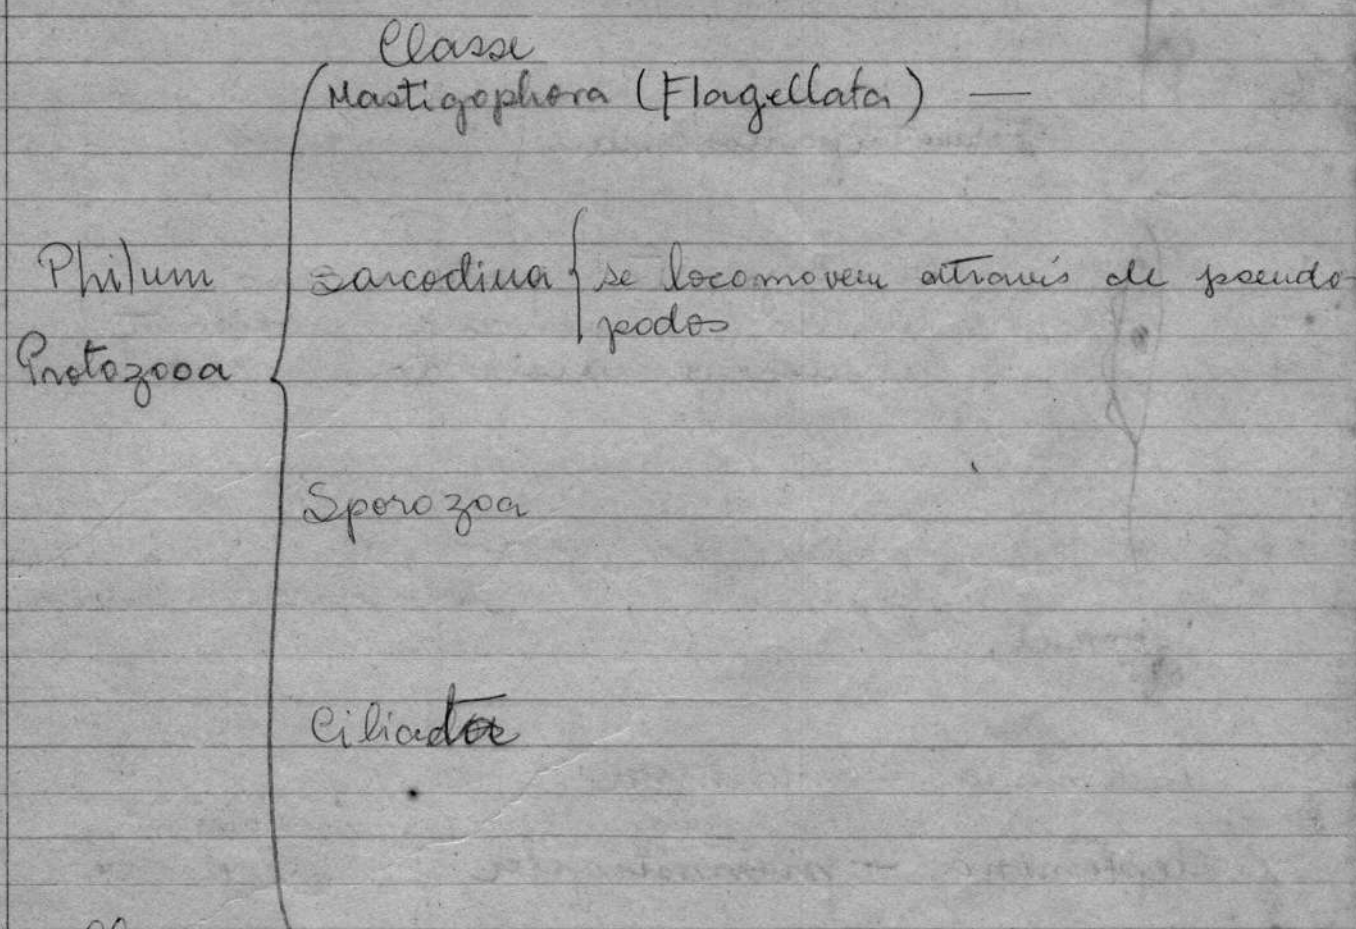 Classe
Mastigophora (Flagellata) —
Philum
Sarcodina { se locomovem através de pseudo-
podos
Protozooa
Sporozoa
Ciliata